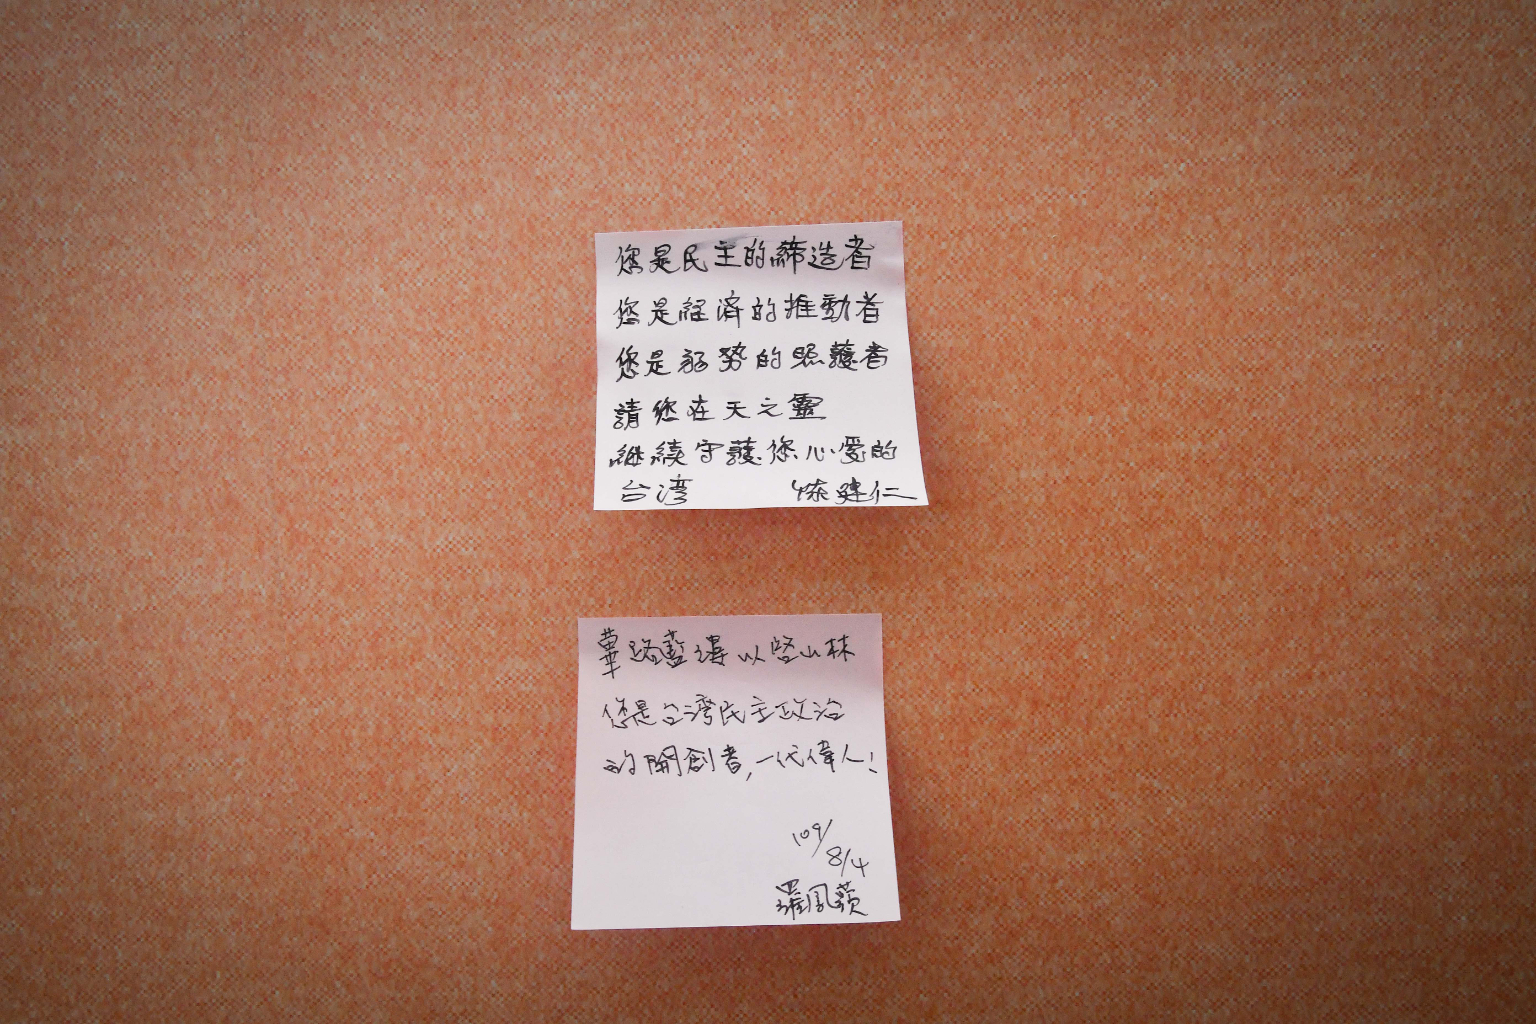 您是民主的締造者
您是経済的推動者
您是弱勢的照護者
請您在天之靈
継續守護您心愛的
台湾 陳建仁
蓽路藍縷以啓山林
您是台湾民主政治
的開創者,一代偉人!
109/
8/4
羅鳳蘋